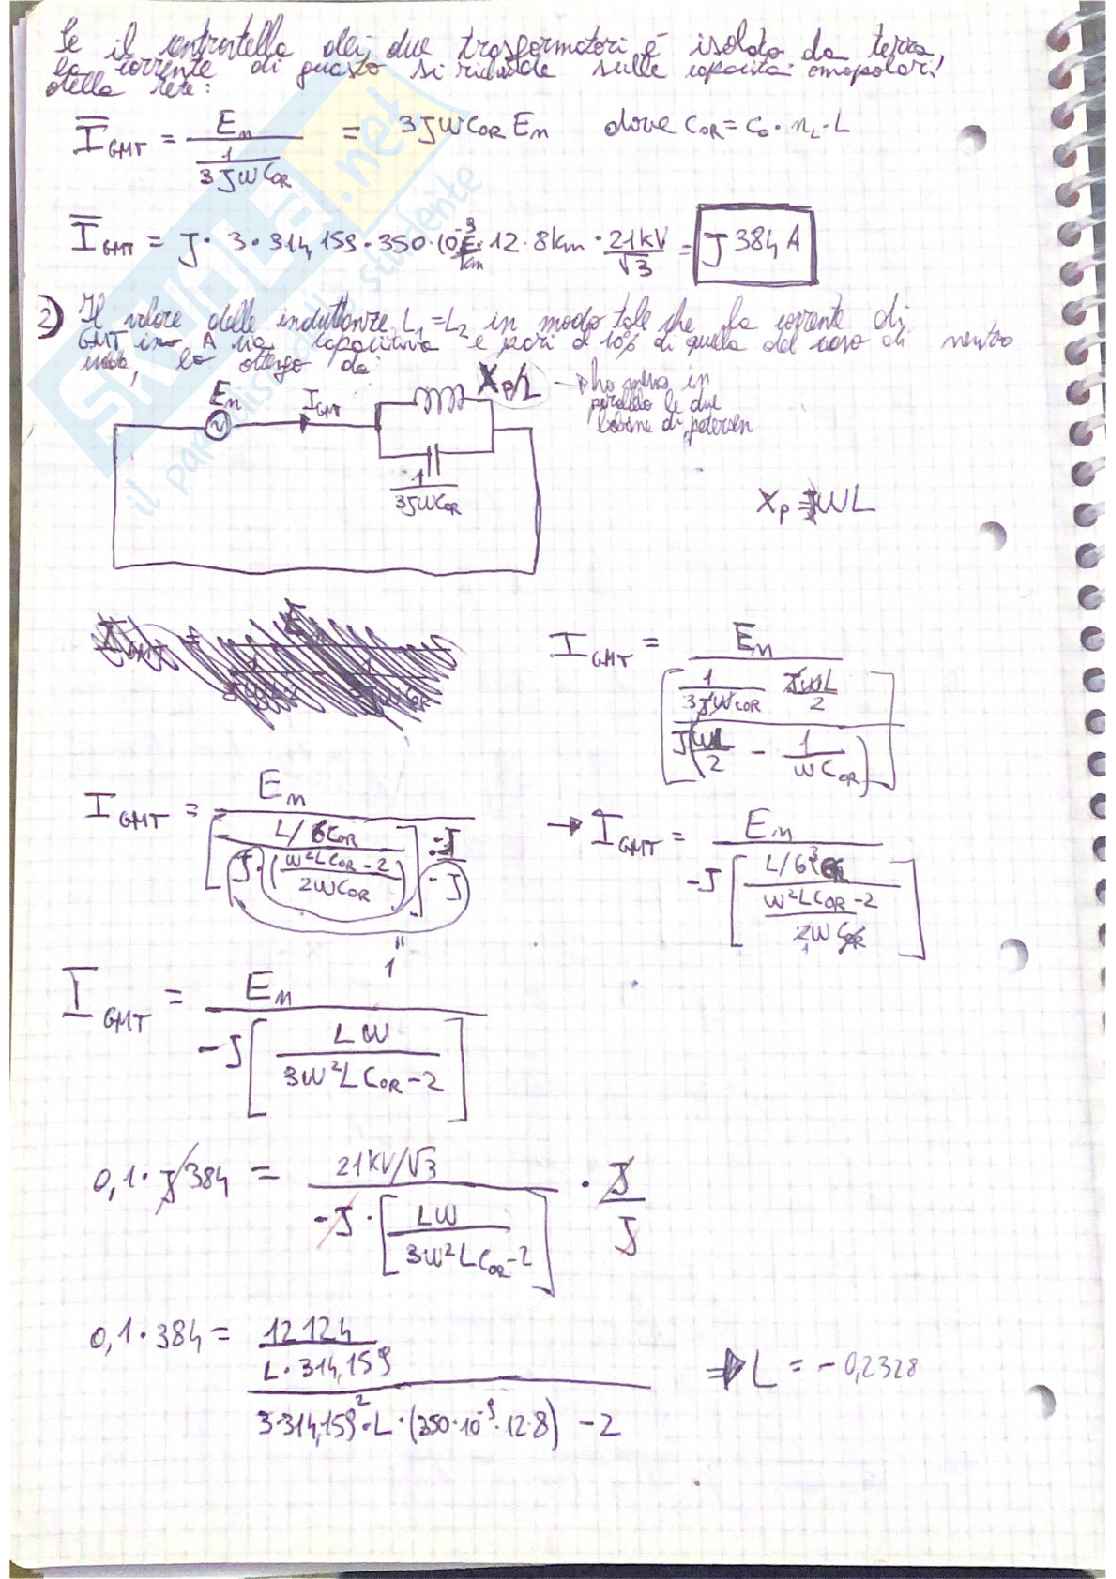 Se il centrostella dei due trasformatori è isolato da terra,
la corrente di guasto si richiude sulle capacità omopolari
della rete:
I̅_GMT = E_n / (1 / 3JWC_OR) = 3JWC_OR E_n dove C_OR = C_0 · n_L · L
I̅_GMT = J · 3 · 314,159 · 350 · 10^-9 F/km · 12 · 8 km · 21 kV / √3 = J 384 A
2) Il valore delle induttanze L_1 = L_2 in modo tale che la corrente di
GMT in A sia capacitiva e pari al 10% di quella del caso di neutro
isolato, lo ottengo da:
E_n I_GMT X_P/L → ho messo in
parallelo le due
bobine di petersen
1 / 3JWC_OR
X_P = JWL
I_GMT = E_n / [ (1 / 3JWC_OR · JWL / 2) / J(WL / 2 - 1 / WC_OR) ]
I_GMT = E_n / [ (L / 6C_OR) / (J · (W²LC_OR - 2) / 2WC_OR) ] · -J / -J → I_GMT = E_n / -J [ (L / 6C_OR) / ((W²LC_OR - 2) / 2WC_OR) ]
" 1
I̅_GMT = E_n / -J [ LW / (3W²LC_OR - 2) ]
0,1 · J 384 = 21 kV/√3 / -J · [ LW / (3W²LC_OR - 2) ] · J / J
0,1 · 384 = 12 124 / L · 314,159 / 3 · 314,159² · L · (350 · 10^-9 · 12 · 8) - 2 ⇒ L = - 0,2328
SKUOLA.net
il paradiso dello studente